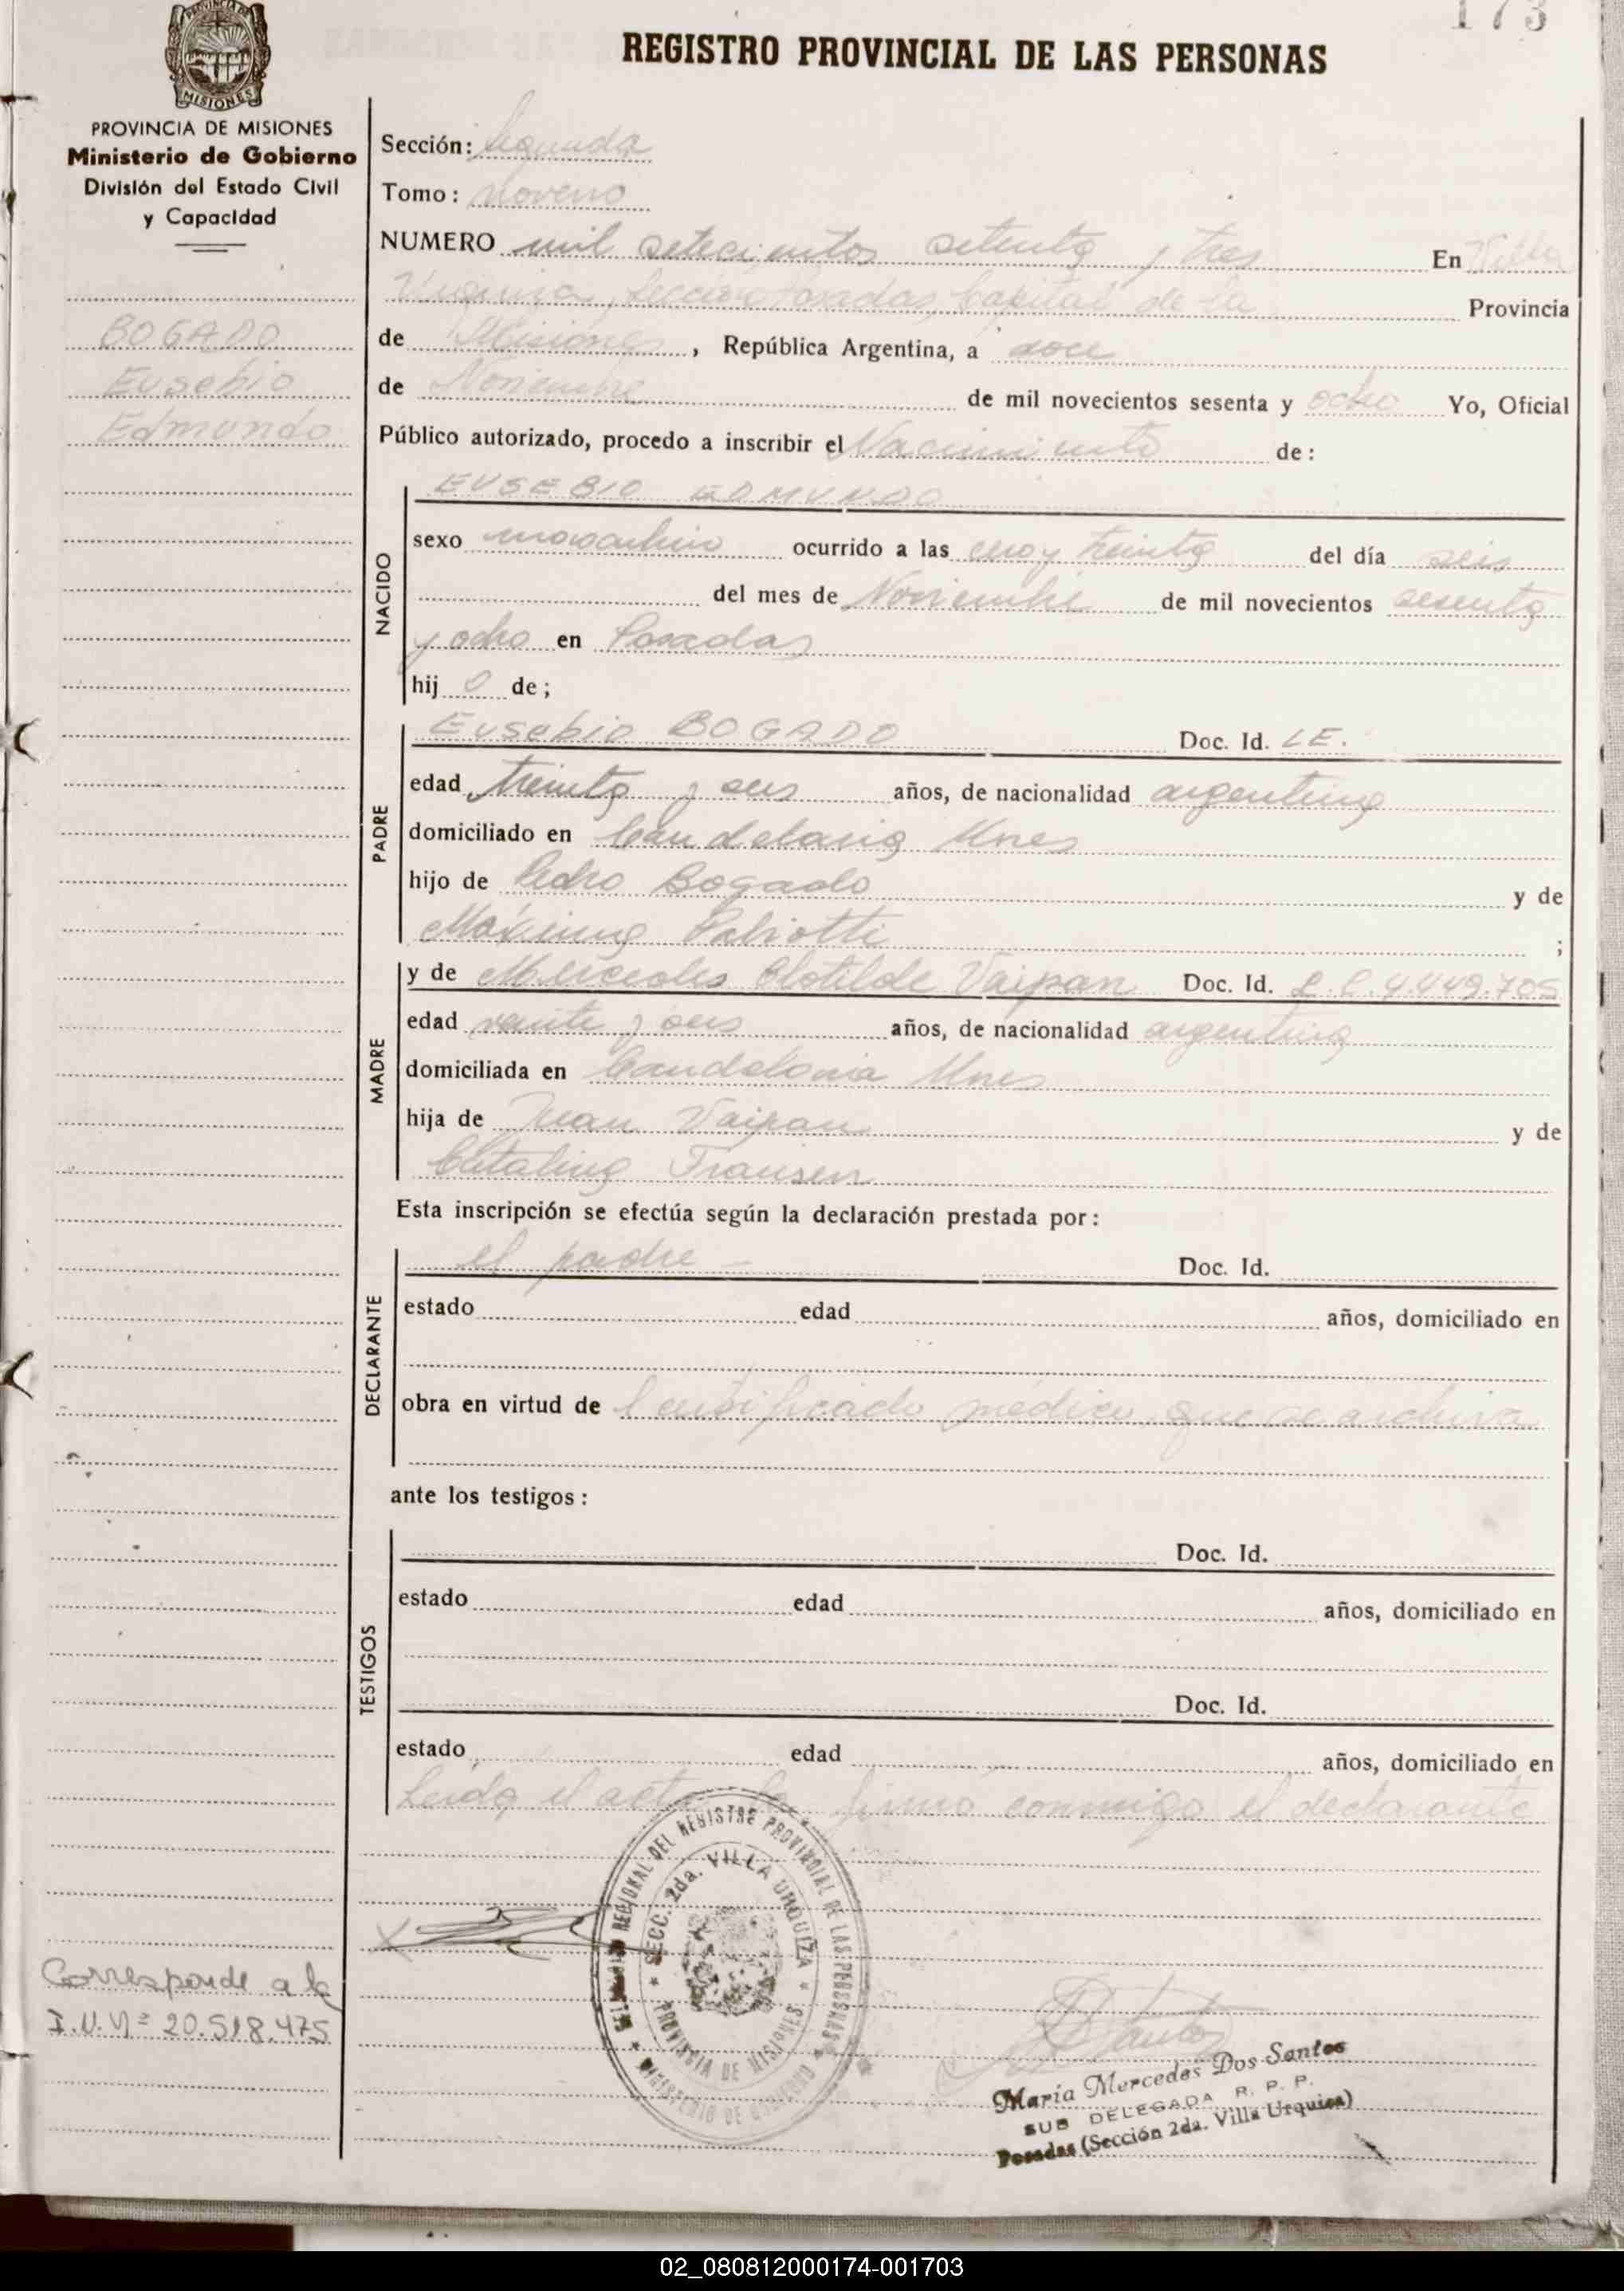 173
REGISTRO PROVINCIAL DE LAS PERSONAS
PROVINCIA DE
MISIONES
PROVINCIA DE MISIONES
Ministerio de Gobierno
División del Estado Civil
y Capacidad
BOGADO
Eusebio
Edmundo
Sección: Segunda
Tomo: noveno
NUMERO mil setecientos setenta y tres En Villa
Urquiza, Sección Posadas, Capital de la Provincia
de Misiones, República Argentina, a doce
de Noviembre de mil novecientos sesenta y ocho Yo, Oficial
Público autorizado, procedo a inscribir el Nacimiento de:
NACIDO
EUSEBIO EDMUNDO
sexo masculino ocurrido a las cero y treinta del día seis
del mes de Noviembre de mil novecientos sesenta
y ocho en Posadas
hij o de;
PADRE
Eusebio BOGADO Doc. Id. L.E.
edad treinta y seis años, de nacionalidad argentina
domiciliado en Candelaria Mnes
hijo de Pedro Bogado y de
Máxima ;
MADRE
y de Mercedes Clotilde Vaipan Doc. Id. L.C. 4.449.705
edad veinte y seis años, de nacionalidad argentina
domiciliada en Candelaria Mnes
hija de Juan Vaipan y de
Catalina Fransen
Esta inscripción se efectúa según la declaración prestada por:
DECLARANTE
el padre – Doc. Id.
estado edad años, domiciliado en
obra en virtud de l certificado médico que se archiva
ante los testigos:
TESTIGOS
Doc. Id.
estado edad años, domiciliado en
Doc. Id.
estado edad años, domiciliado en
Leída el acta la firmó conmigo el declarante
REGIONAL DEL REGISTRO PROVINCIAL DE LAS PERSONAS
SECC. 2da. VILLA URQUIZA
PROVINCIA DE MISIONES
MINISTERIO DE GOBIERNO
Corresponde a la
I.U. Nº 20.518.475
María Mercedes Dos Santos
SUB DELEGADA R. P. P.
Posadas (Sección 2da. Villa Urquiza)
02_080812000174-001703